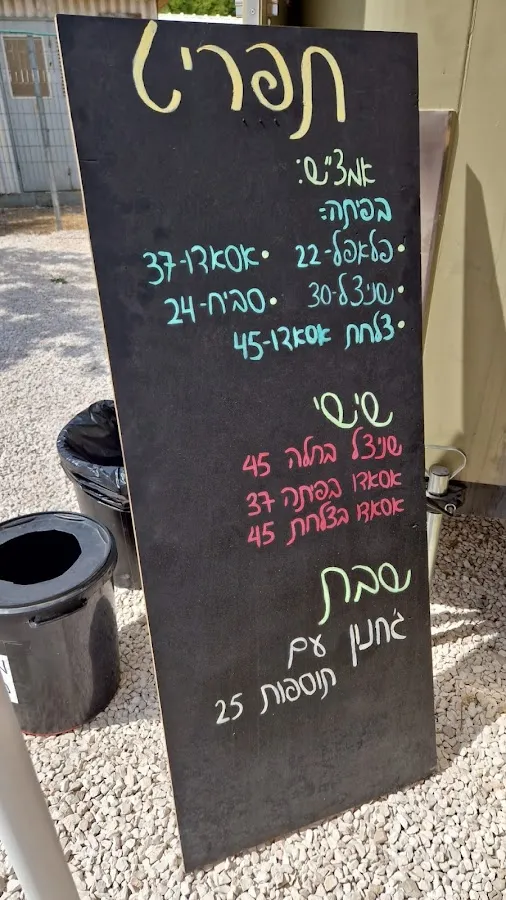 תפריט
אמצ"ש:
בפיתה:
• פלאפל-22 • אסאדו-37
• שניצל-30 • סביח-24
• צלחת אסאדו-45
שישי
שניצל בחלה 45
אסאדו בפיתה 37
אסאדו בצלחת 45
שבת
ג'חנון עם
תוספות 25